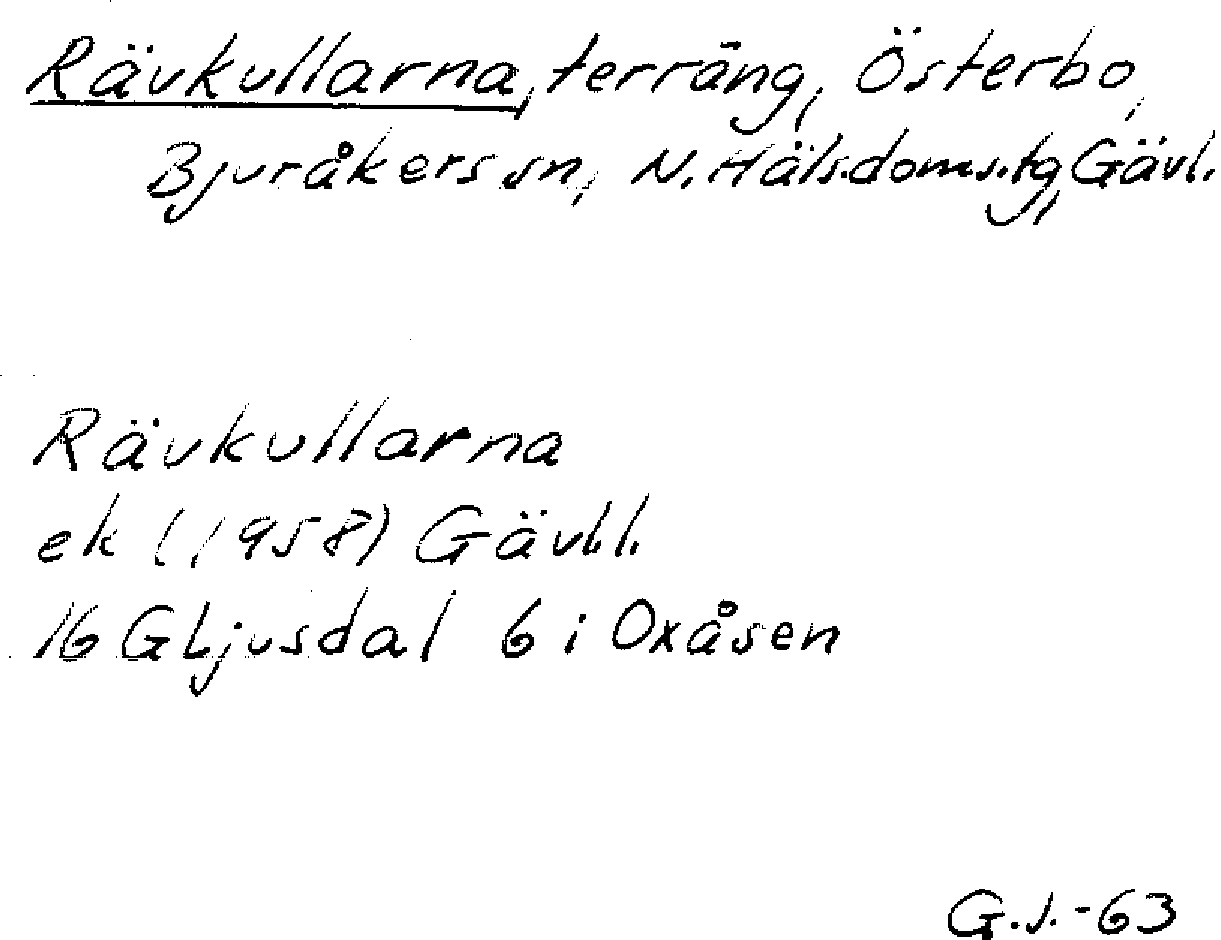 Rävkullarna, terräng, Österbo,
Bjuråkers sn, N. Häls.doms.tg, Gävl.
Rävkullarna
ek (1958) Gävl.l.
16 G Ljusdal 6 i Oxåsen
G.J.-63